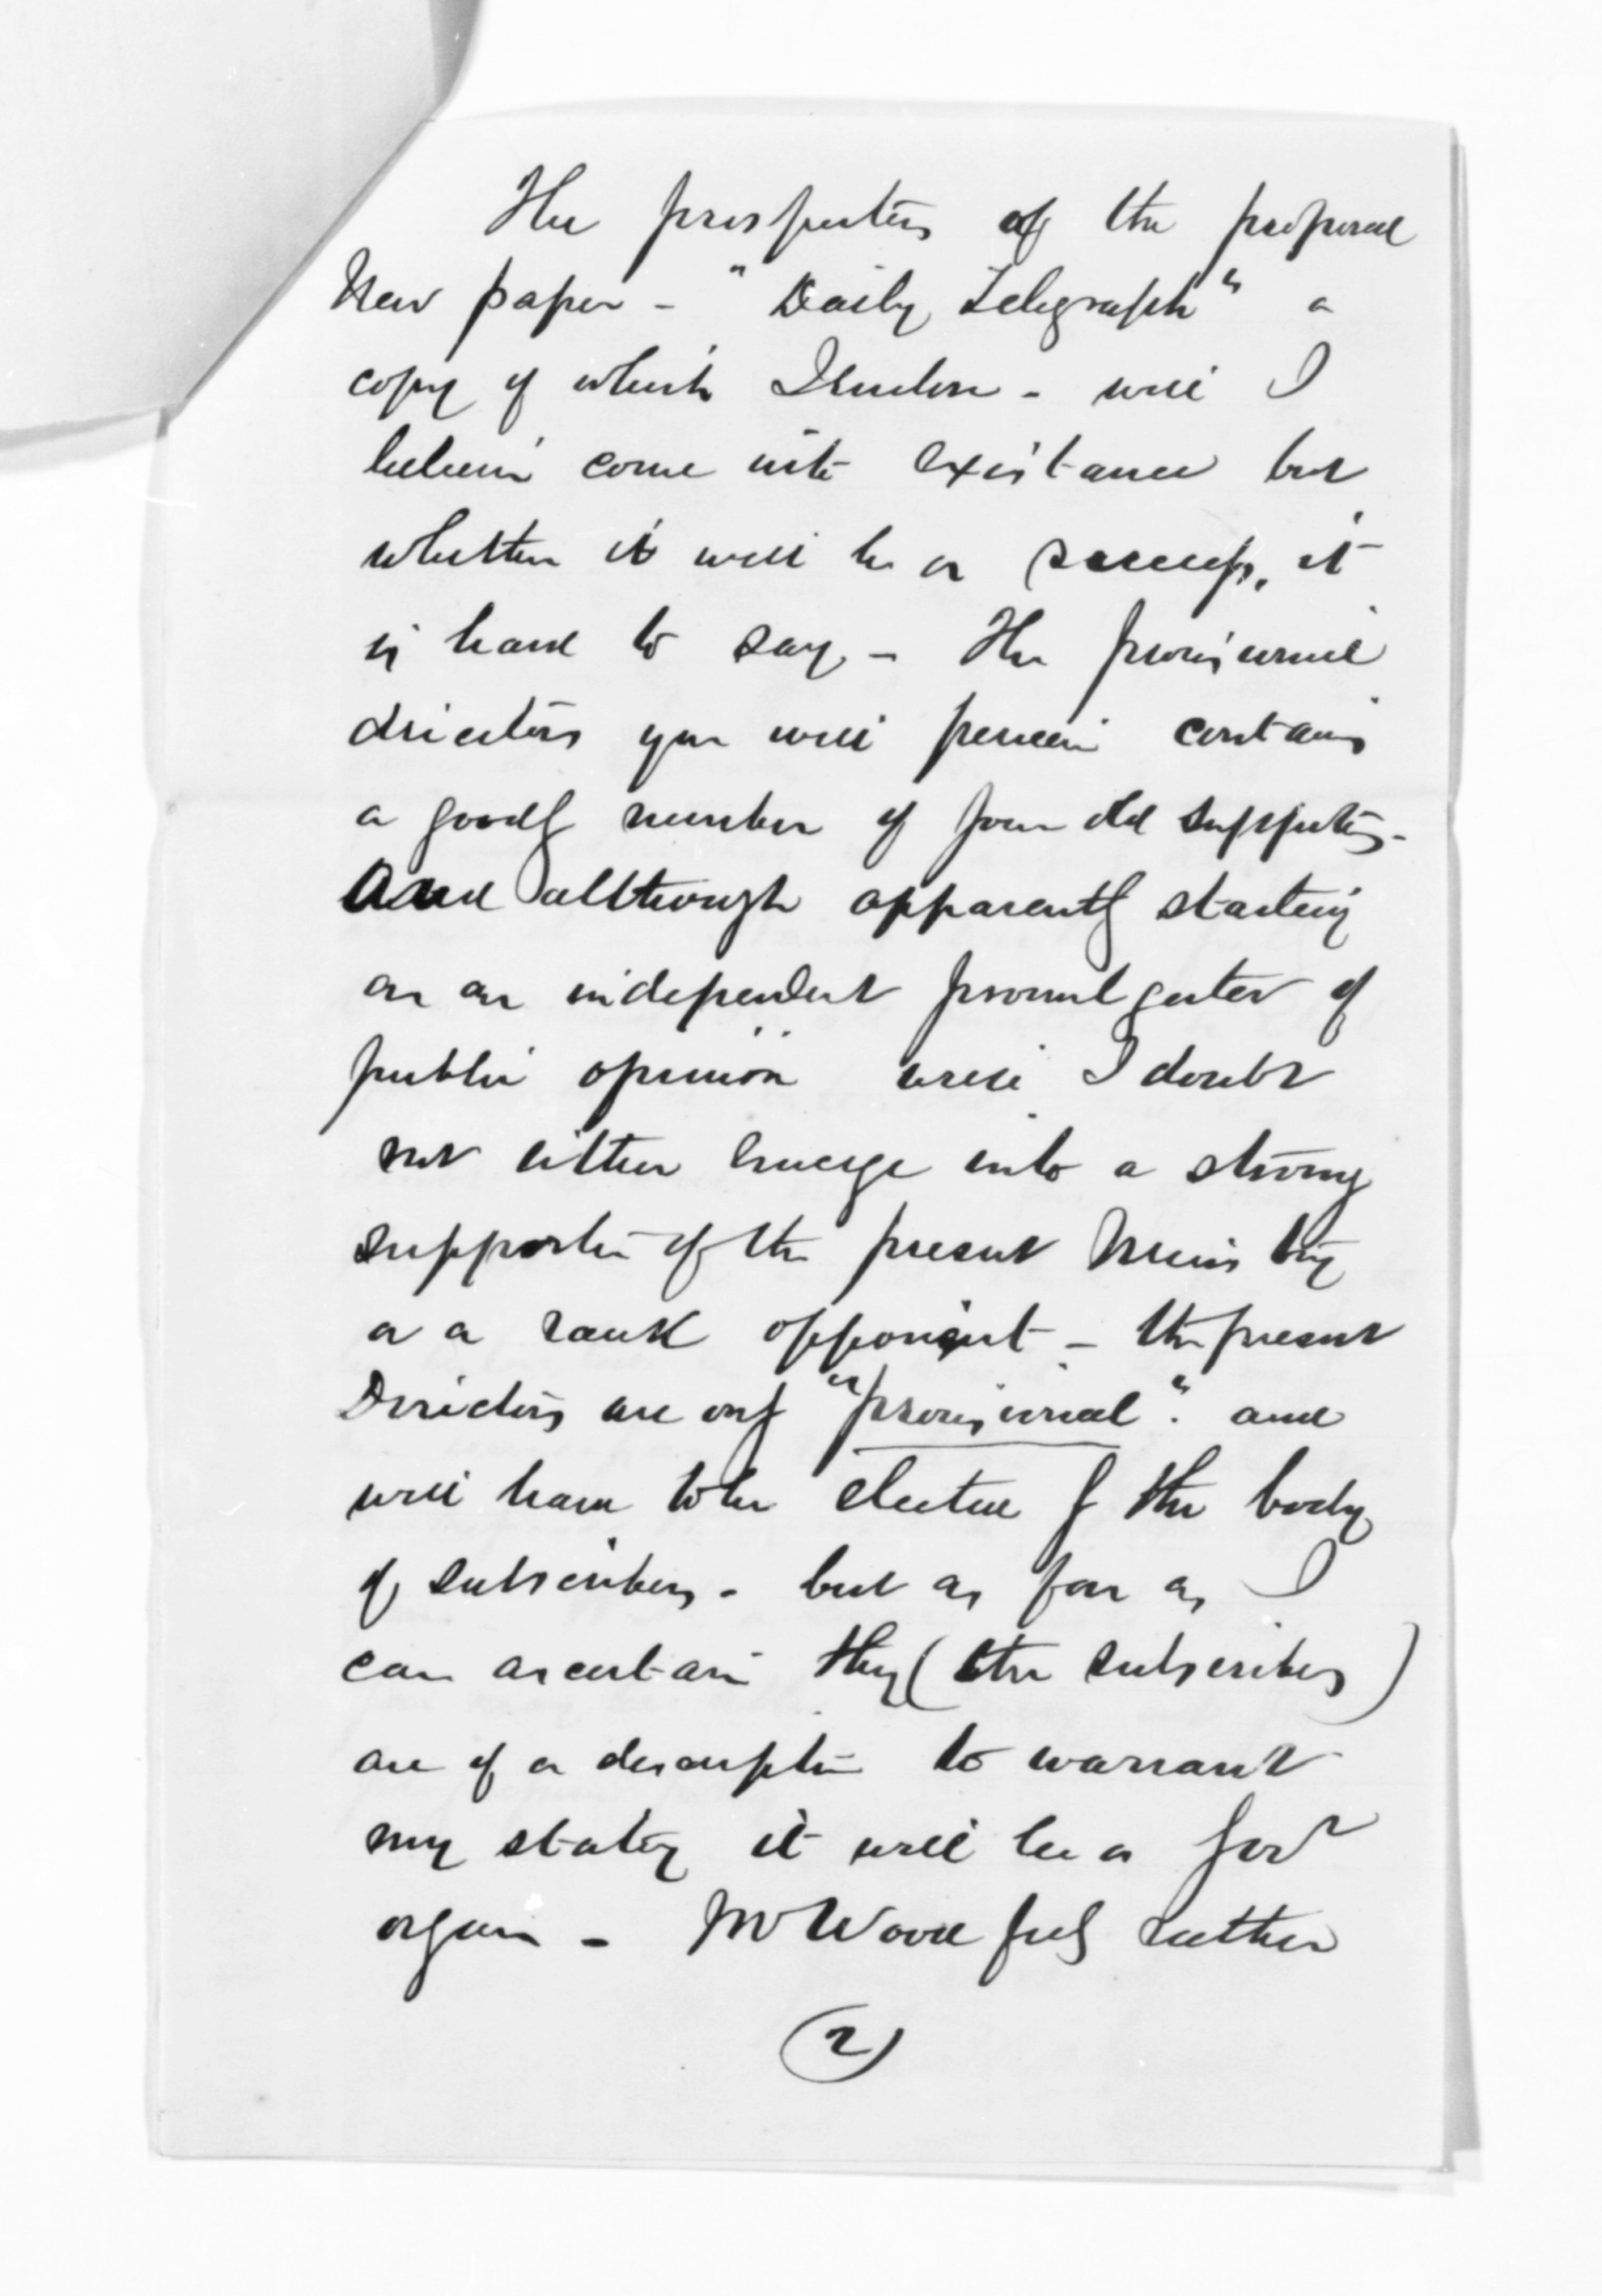 The prospectus of the proposed
New paper - "Daily Telegraph" a
copy of which I enclose - will I
believe come into existance but
whether it will be a success, it
is hard to say - The provisional
directors you will perceive contains
a goodly number of your old supporters -
And allthough apparently starting
as an independent promulgator of
public opinion will I doubt
not either emerge into a strong
supporter of the present Ministry
or a rank opponent - the present
Directors are only "provisional". and
will have to be elected by the body
of subscribers - but as far as I
can ascertain they (the subscribers)
are of a description to warrant
my stating it will be a Govt
organ - Mr Wood feels rather
(2)